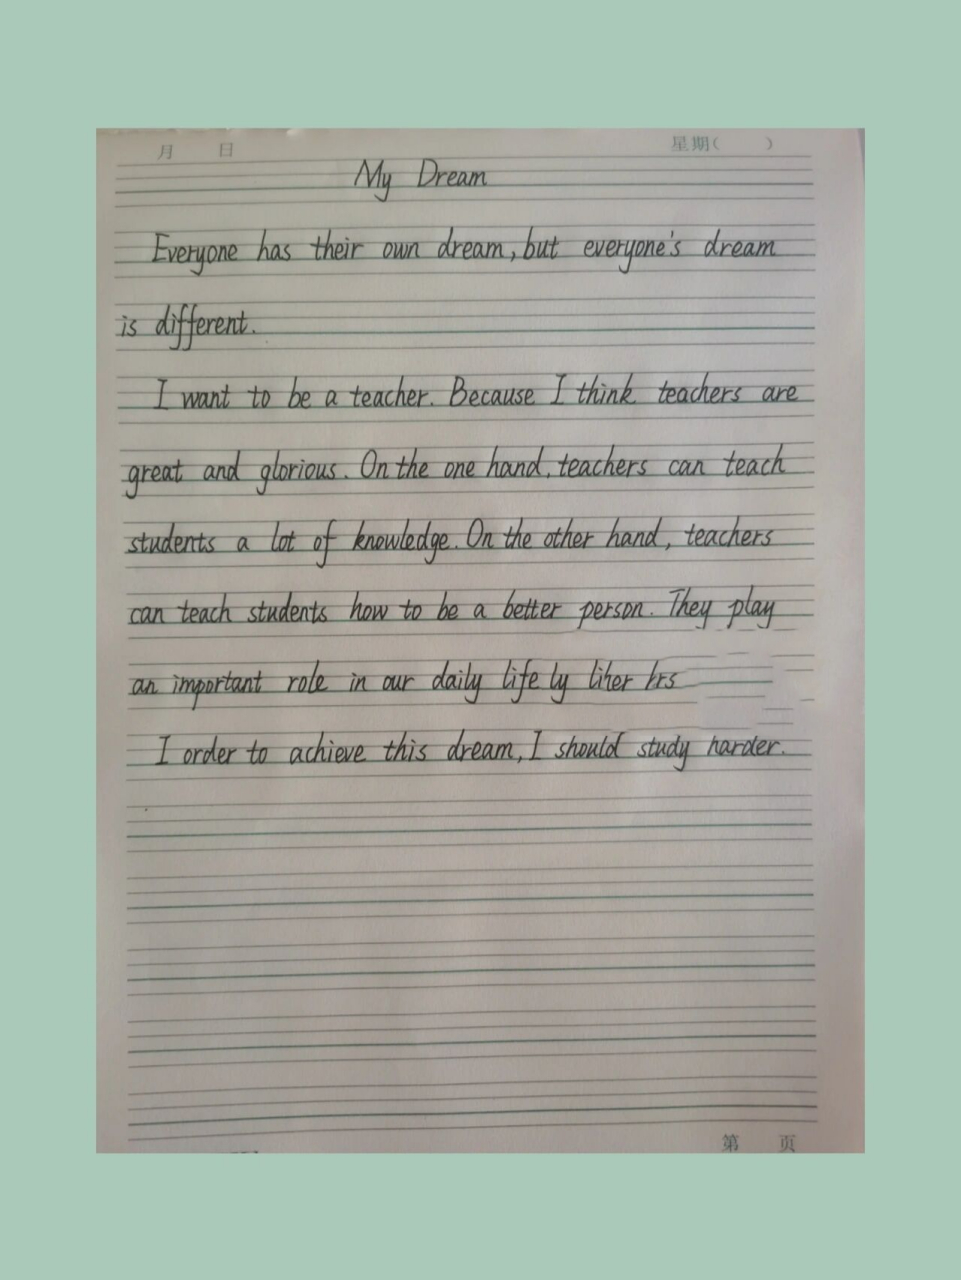 月 日 星期( )
My Dream
Everyone has their own dream, but everyone's dream
is different.
I want to be a teacher. Because I think teachers are
great and glorious. On the one hand, teachers can teach
students a lot of knowledge. On the other hand, teachers
can teach students how to be a better person. They play
an important role in our daily life
I order to achieve this dream, I should study harder.
第 页